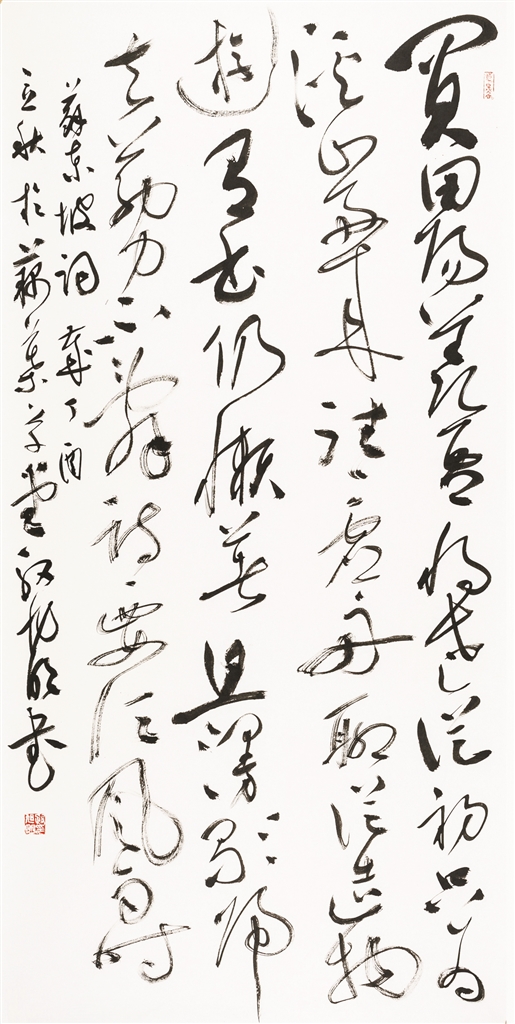 買田陽羨吾將老從初只為
溪山好來往一虛舟聊從造物
遊有書仍懶著且漫歌歸
去筋力不辭詩要須風雨時
蘇東坡詞 歲丁酉
立秋於草堂書